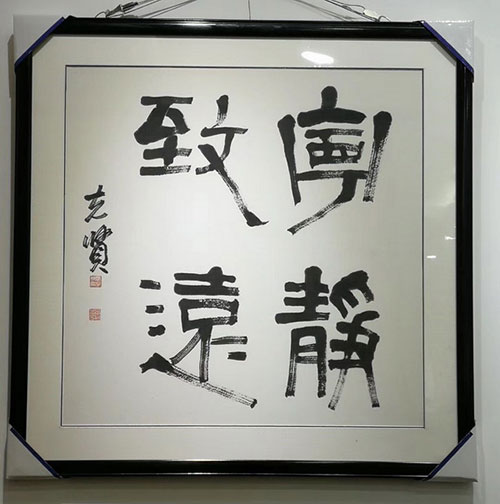 寧靜
致遠
克賢